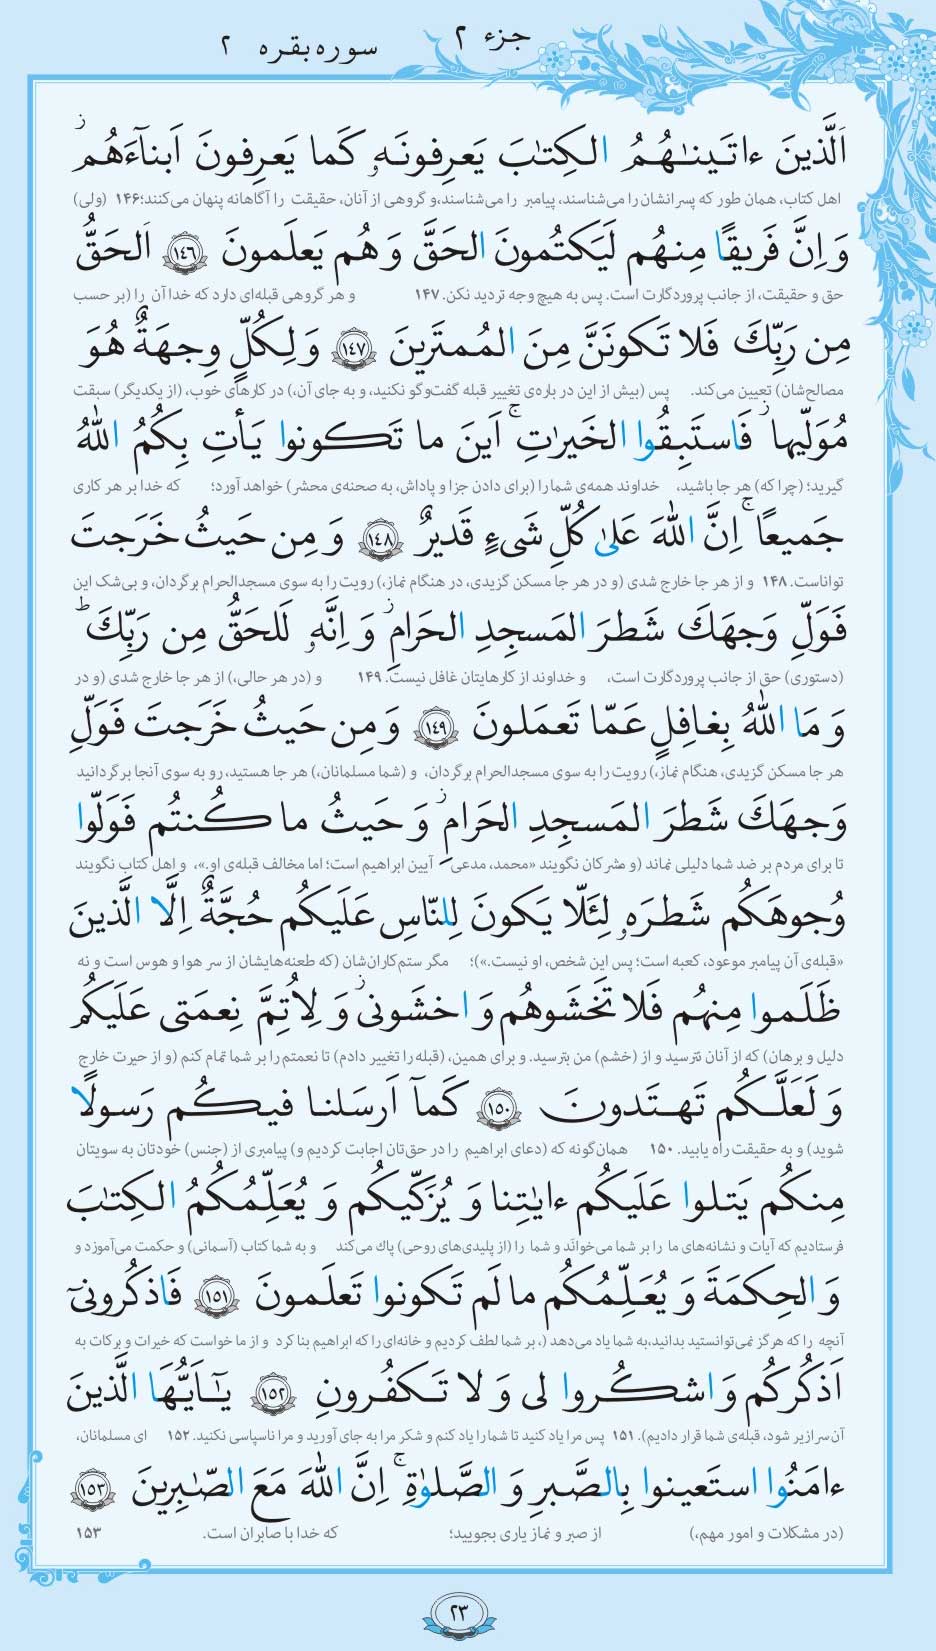 جزء ۲
سوره بقره ۲
اَلَّذينَ ءاتَينـٰهُمُ الكِتـٰبَ يَعرِفونَهٗ كَما يَعرِفونَ اَبناۤءَهُم ۖز
اهل کتاب، همان طور که پسرانشان را می‌شناسند، پیامبر را می‌شناسند، و گروهی از آنان، حقیقت را آگاهانه پنهان می‌کنند؛ ۱۴۶ (ولی)
وَ اِنَّ فَريقًا مِنهُم لَيَكتُمونَ الحَقَّ وَ هُم يَعلَمونَ ﴿١٤٦﴾ اَلحَقُّ
حق و حقیقت، از جانب پروردگارت است. پس به هیچ وجه تردید نکن. ۱۴۷ و هر گروهی قبله‌ای دارد که خدا آن را (بر حسب
مِن رَبِّكَ فَلا تَكونَنَّ مِنَ المُمتَرينَ ﴿١٤٧﴾ وَ لِكُلٍّ وِجهَةٌ هُوَ
مصالح‌شان) تعیین می‌کند. پس (بیش از این در باره‌ی تغییر قبله گفت‌وگو نکنید، و به جای آن،) در کارهای خوب، (از یکدیگر) سبقت
مُوَلّيها ز فَاستَبِقُوا الخَيراتِ ۚ اَينَ ما تَكونوا يَأتِ بِكُمُ اللهُ
گیرید؛ (چرا که) هر جا باشید، خداوند همه‌ی شما را (برای دادن جزا و پاداش، به صحنه‌ی محشر) خواهد آورد؛ که خدا بر هر کاری
جَميعًا ۚ اِنَّ اللهَ عَلىٰ كُلِّ شَیءٍ قَديرٌ ﴿١٤٨﴾ وَ مِن حَيثُ خَرَجتَ
تواناست. ۱۴۸ و از هر جا خارج شدی (و در هر جا مسکن گزیدی، در هنگام نماز،) رویت را به سوی مسجدالحرام برگردان، و بی‌شک این
فَوَلِّ وَجهَكَ شَطرَ المَسجِدِ الحَرامِ ز وَ اِنَّهٗ لَلحَقُّ مِن رَبِّكَ ط
(دستوری) حق از جانب پروردگارت است، و خداوند از کارهایتان غافل نیست. ۱۴۹ و (در هر حالی،) از هر جا خارج شدی (و در
وَ مَا اللهُ بِغافِلٍ عَمّا تَعمَلونَ ﴿١٤٩﴾ وَ مِن حَيثُ خَرَجتَ فَوَلِّ
هر جا مسکن گزیدی، هنگام نماز،) رویت را به سوی مسجدالحرام برگردان، و (شما مسلمانان،) هر جا هستید، رو به سوی آنجا برگردانید
وَجهَكَ شَطرَ المَسجِدِ الحَرامِ ز وَ حَيثُ ما كُنتُم فَوَلّوا
تا برای مردم بر ضد شما دلیلی نماند (و مشرکان نگویند «محمد، مدعی آیین ابراهیم است؛ اما مخالف قبله‌ی او.»، و اهل کتاب نگویند
وُجوهَكُم شَطرَهٗ لِئَلّا يَكونَ لِلنّاسِ عَلَيكُم حُجَّةٌ اِلَّا الَّذينَ
«قبله‌ی آن پیامبر موعود، کعبه است؛ پس این شخص، او نیست.»)؛ مگر ستم‌کاران‌شان (که طعنه‌هایشان از سر هوا و هوس است و نه
ظَلَموا مِنهُم فَلا تَخشَوهُم وَ اخشَونی ز وَ لِاُتِمَّ نِعمَتی عَلَيكُم
دلیل و برهان) که از آنان نترسید و از (خشم) من بترسید. و برای همین، (قبله را تغییر دادم) تا نعمتم را بر شما تمام کنم (و از حیرت خارج
وَ لَعَلَّكُم تَهتَدونَ ﴿١٥٠﴾ كَماۤ اَرسَلنا فيكُم رَسولًا
شوید) و به حقیقت راه یابید. ۱۵۰ همان‌گونه که (دعای ابراهیم را در حق‌تان اجابت کردیم و) پیامبری از (جنس) خودتان به سویتان
مِنكُم يَتلوا عَلَيكُم ءاياتِنا وَ يُزَكّيكُم وَ يُعَلِّمُكُمُ الكِتـٰبَ
فرستادیم که آیات و نشانه‌های ما را بر شما می‌خواند و شما را (از پلیدی‌های روحی) پاک می‌کند و به شما کتاب (آسمانی) و حکمت می‌آموزد و
وَ الحِكمَةَ وَ يُعَلِّمُكُم ما لَم تَكونوا تَعلَمونَ ﴿١٥١﴾ فَاذكُرونیۤ
آنچه را که هرگز نمی‌توانستید بدانید، به شما یاد می‌دهد (، بر شما لطف کردیم و خانه‌ای را که ابراهیم بنا کرد و از ما خواست که خیرات و برکات به
اَذكُركُم وَ اشكُروا لی وَ لا تَكفُرونِ ﴿١٥٢﴾ يـٰۤاَيُّهَا الَّذينَ
آن سرازیر شود، قبله‌ی شما قرار دادیم). ۱۵۱ پس مرا یاد کنید تا شما را یاد کنم و شکر مرا به جای آورید و مرا ناسپاسی نکنید. ۱۵۲ ای مسلمانان،
ءامَنُوا استَعينوا بِالصَّبرِ وَ الصَّلوٰةِ ۚ اِنَّ اللهَ مَعَ الصّـٰبِرينَ ﴿١٥٣﴾
(در مشکلات و امور مهم،) از صبر و نماز یاری بجویید؛ که خدا با صابران است. ۱۵۳
۲۳